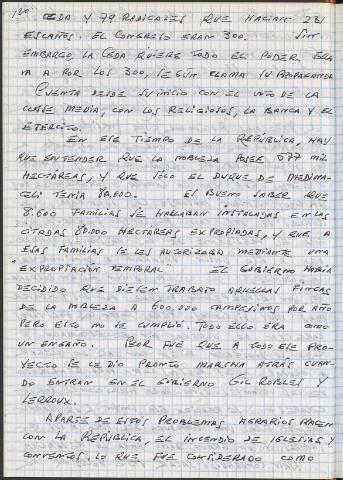 120
CEDA Y 79 RADICALES QUE HACIAN 231
ESCAÑOS. EL CONGRESO ERAN 300. SIN
EMBARGO, LA CEDA QUIERE TODO EL PODER. ELLA
VA A POR LOS 300, SEGÚN CLAMA SU PROPAGANDA
CUENTA DESDE SU INICIO CON EL VOTO DE LA
CLASE MEDIA, CON LOS RELIGIOSOS, LA BANCA Y EL
EJÉRCITO.
EN ESE TIEMPO DE LA REPÚBLICA, HAY
QUE ENTENDER QUE LA NOBLEZA POSEE 577 MIL
HECTÁREAS, Y QUE SÓLO EL DUQUE DE MEDINA-
CELI TENIA 80.000. ES BUENO SABER QUE
8.600 FAMILIAS SE HALLABAN INSTALADAS EN LAS
CITADAS 80.000 HECTÁREAS EXPROPIADAS, Y QUE A
ESAS FAMILIAS SE LES AUTORIZABA MEDIANTE UNA
"EXPROPIACIÓN TEMPORAL" EL GOBIERNO HABÍA
DECIDIDO QUE DIESEN TRABAJO AQUELLAS FINCAS
DE LA NOBLEZA A 600.000 CAMPESINOS POR AÑO
PERO ESTO NO SE CUMPLIÓ. TODO ELLO ERA COMO
UN ENGAÑO. PEOR FUE QUE A TODO ESE PRO-
YECTO SE LE DIO PRONTO MARCHA ATRÁS CUAN-
DO ENTRAN EN EL GOBIERNO GIL ROBLES Y
LERROUX.
APARTE DE ESTOS PROBLEMAS AGRARIOS NACEN
CON LA REPÚBLICA, EL INCENDIO DE IGLESIAS Y
CONVENTOS. LO QUE FUE CONSIDERADO COMO